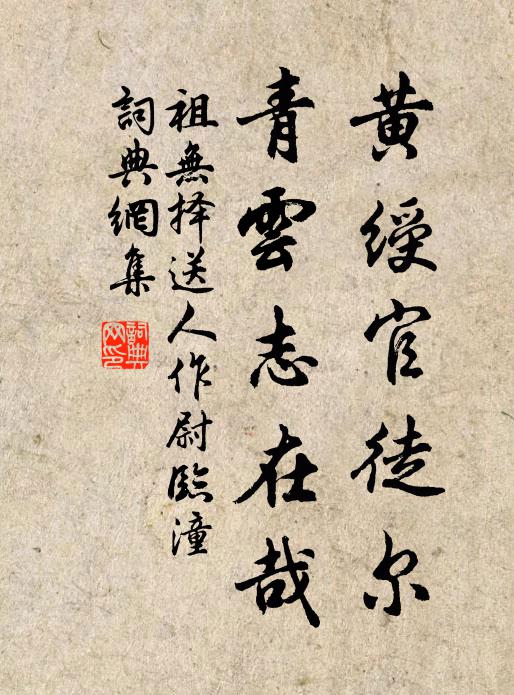 黄綬官徒尔
青雲志在哉
祖無择送人作尉臨潼
詞典網集
詞典网印